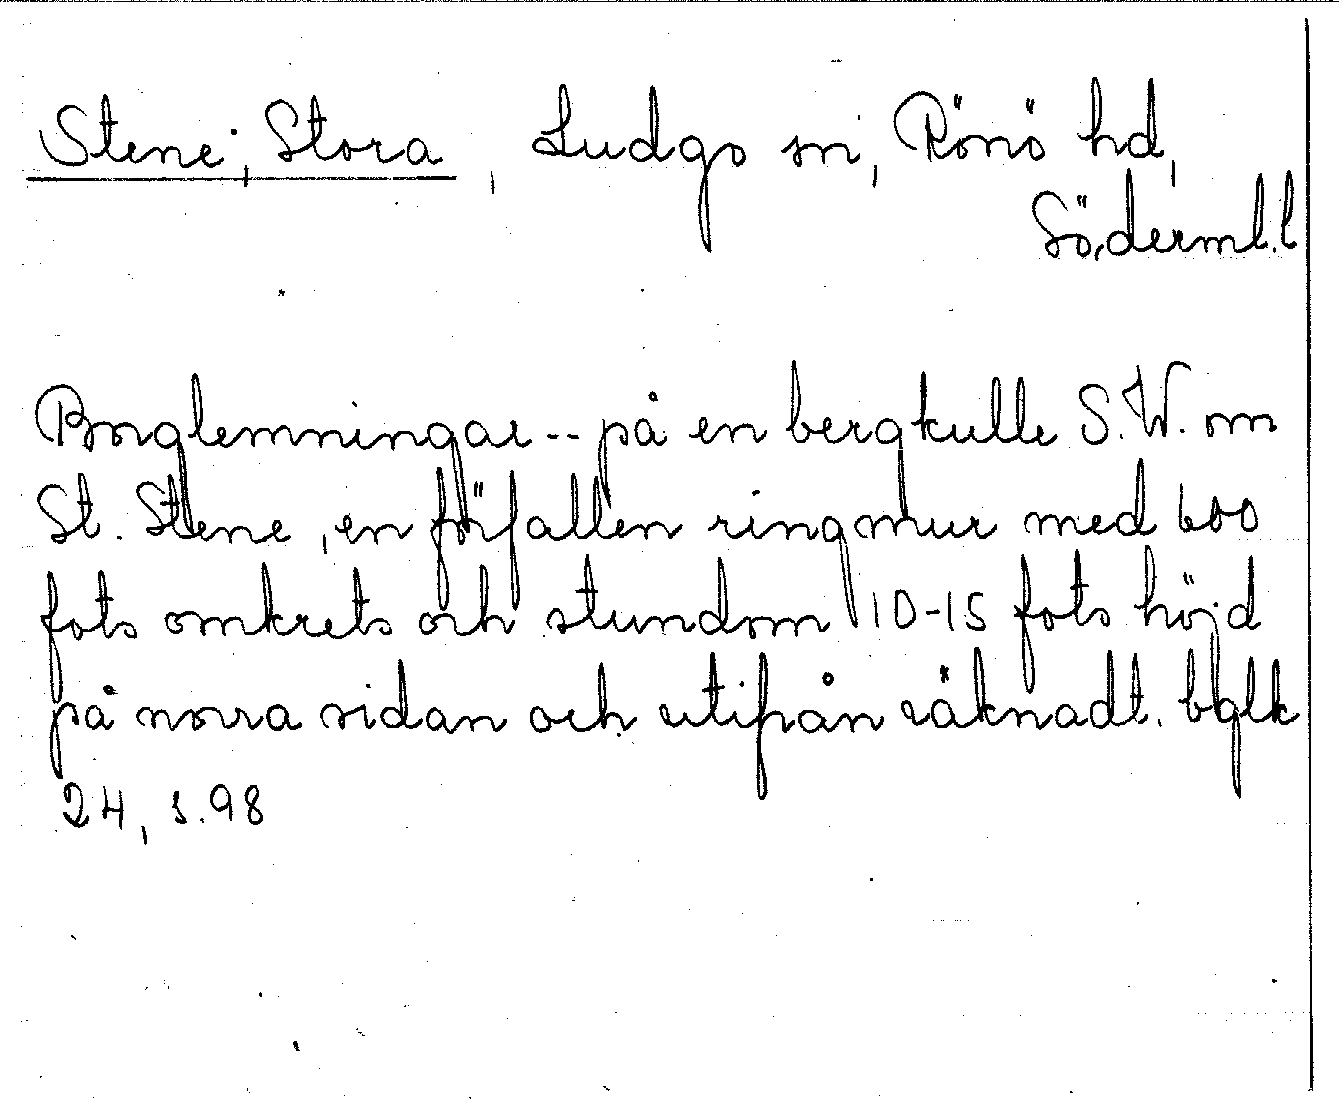 Stene, Stora, Ludgo sn, Rönö hd,
Söderml. l
Borglemningar -- på en bergkulle S.W. om
St. Stene, en förfallen ringmur med 600
fots omkrets och stundom 10-15 fots höjd
på norra sidan och utifrån räknadt. bglk
24, s. 98